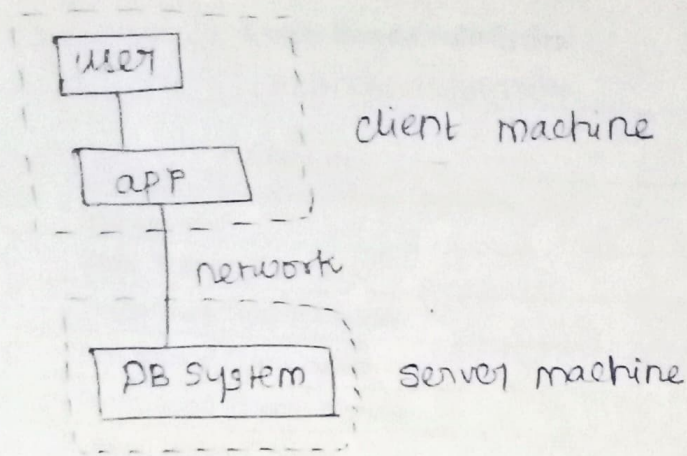 user
client machine
app
network
DB System
server machine